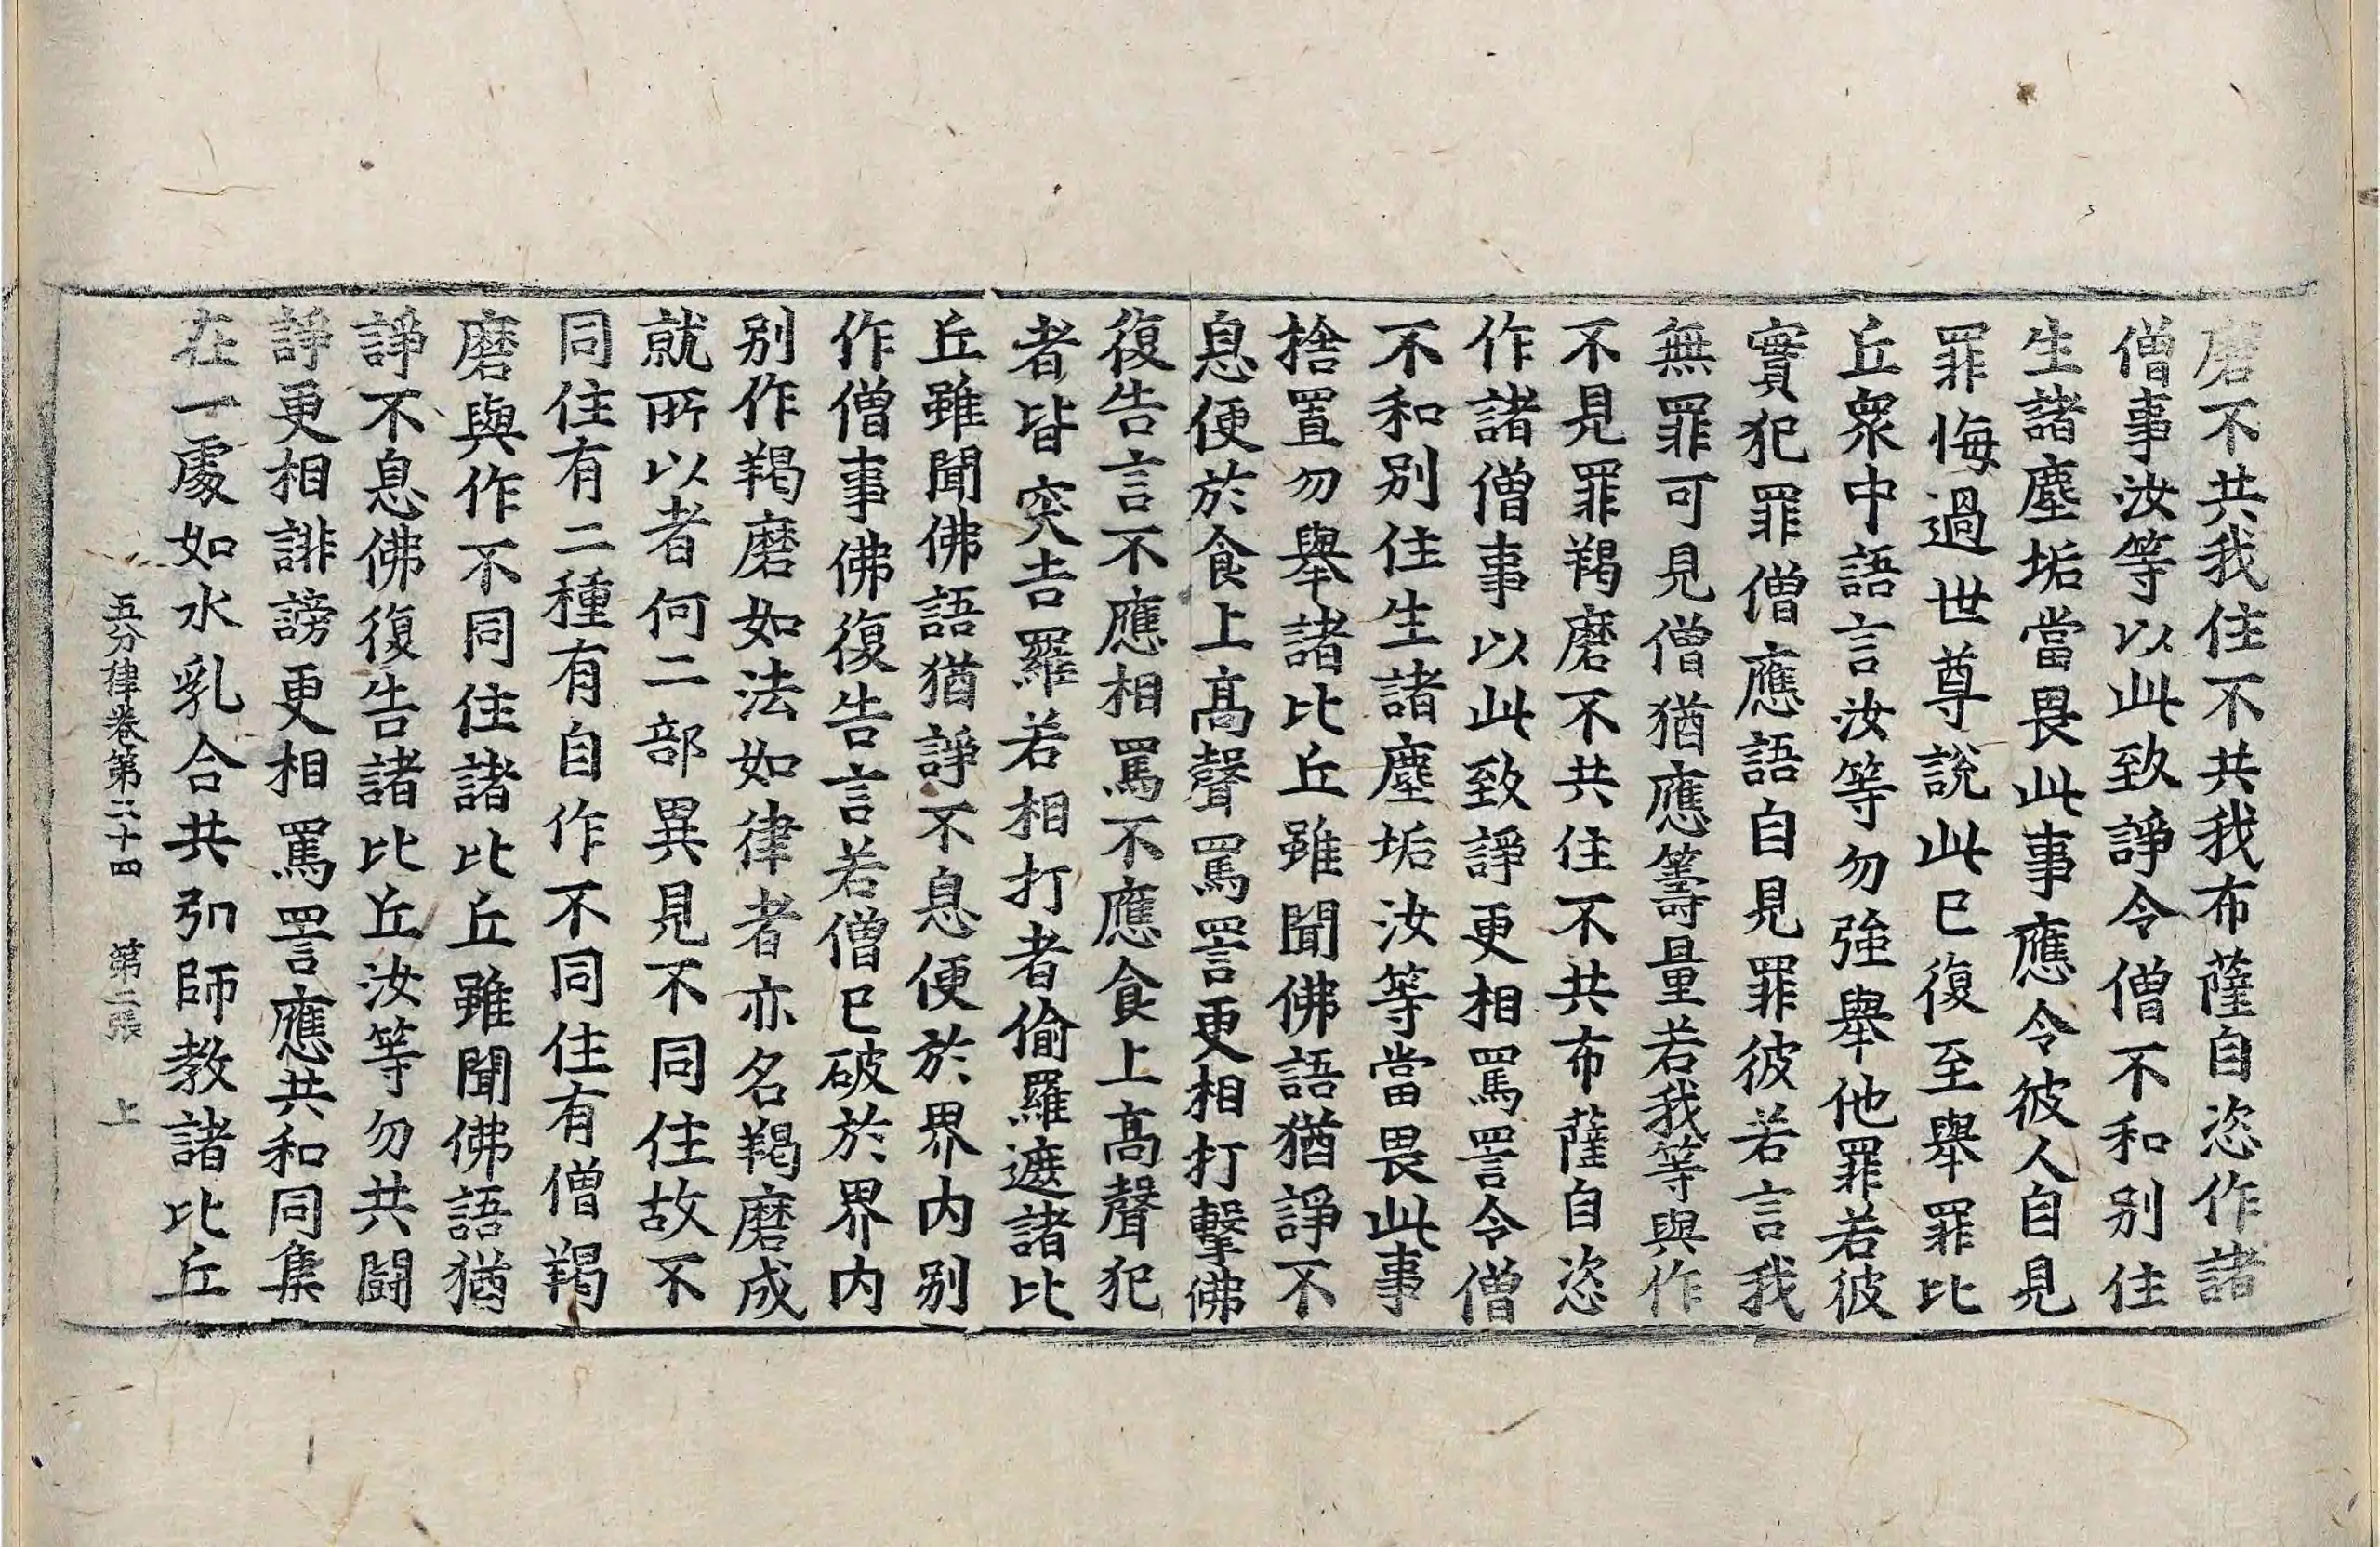 磨不共我住不共我布薩自恣作諸
僧事汝等以此致諍令僧不和別住
生諸塵垢當畏此事應令彼人自見
罪悔過世尊說此已復至舉罪比
丘衆中語言汝等勿強舉他罪若彼
實犯罪僧應語自見罪彼若言我
無罪可見僧猶應籌量若我等與作
不見罪羯磨不共住不共布薩自恣
作諸僧事以此致諍更相罵詈令僧
不和別住生諸塵垢汝等當畏此事
捨置勿舉諸比丘雖聞佛語猶諍不
息便於食上高聲罵詈更相打擊佛
復告言不應相罵不應食上高聲犯
者皆突吉羅若相打者偷羅遮諸比
丘雖聞佛語猶諍不息便於界內別
作僧事佛復告言若僧已破於界內
別作羯磨如法如律者亦名羯磨成
就所以者何二部異見不同住故不
同住有二種有自作不同住有僧羯
磨與作不同住諸比丘雖聞佛語猶
諍不息佛復告諸比丘汝等勿共鬪
諍更相誹謗更相罵詈應共和同集
在一處如水乳合共弘師教諸比丘
五分律卷第二十四 第二張 上